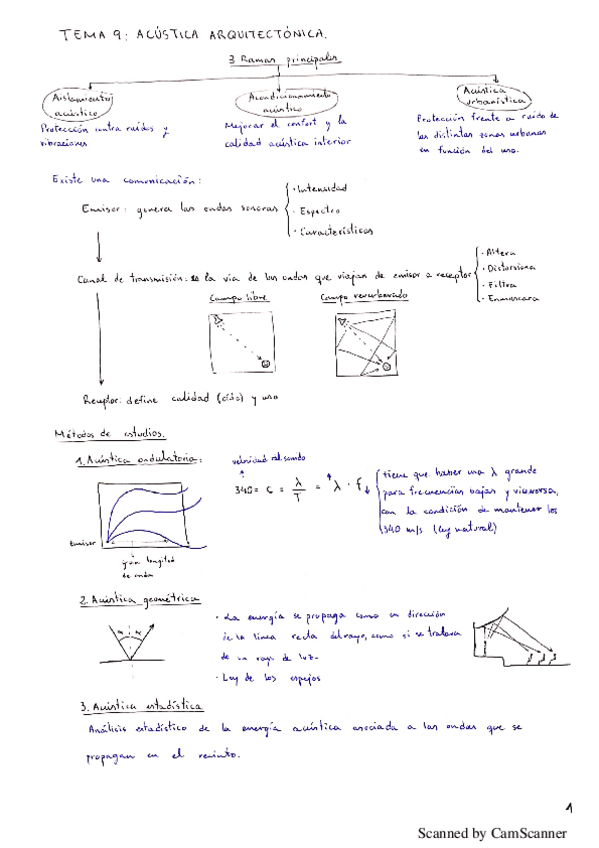 TEMA 9: ACÚSTICA ARQUITECTÓNICA.
3 Ramas principales
Aislamiento acústico
Acondicionamiento acústico
Acústica urbanística
Protección contra ruidos y vibraciones
Mejorar el confort y la calidad acústica interior
Protección frente a ruido de las distintas zonas urbanas en función del uso.
Existe una comunicación:
Emisor: genera las ondas sonoras
· Intensidad
· Espectro
· Características
Canal de transmisión: es la vía de las ondas que viajan de emisor a receptor
· Altera
· Distorsiona
· Filtra
· Enmascara
Campo libre
Campo reverberado
Receptor: define calidad (oído) y uso
Métodos de estudios.
1. Acústica ondulatoria:
velocidad del sonido
340 = c = λ/T = λ · f
tiene que haber una λ grande
para frecuencias bajas y viceversa,
con la condición de mantener los
340 m/s (ley natural)
Emisor
gran longitud
de onda
2. Acústica geométrica
α α
· La energía se propaga como en dirección
de la línea recta del rayo, como si se tratara
de un rayo de luz.
· Ley de los espejos
3. Acústica estadística
Análisis estadístico de la energía acústica asociada a las ondas que se
propagan en el recinto.
1
Scanned by CamScanner